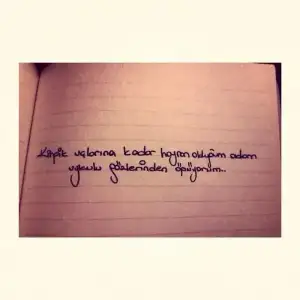 Kirpik uçlarına kadar hayran olduğum adam
uykulu gözlerinden öpüyorum..